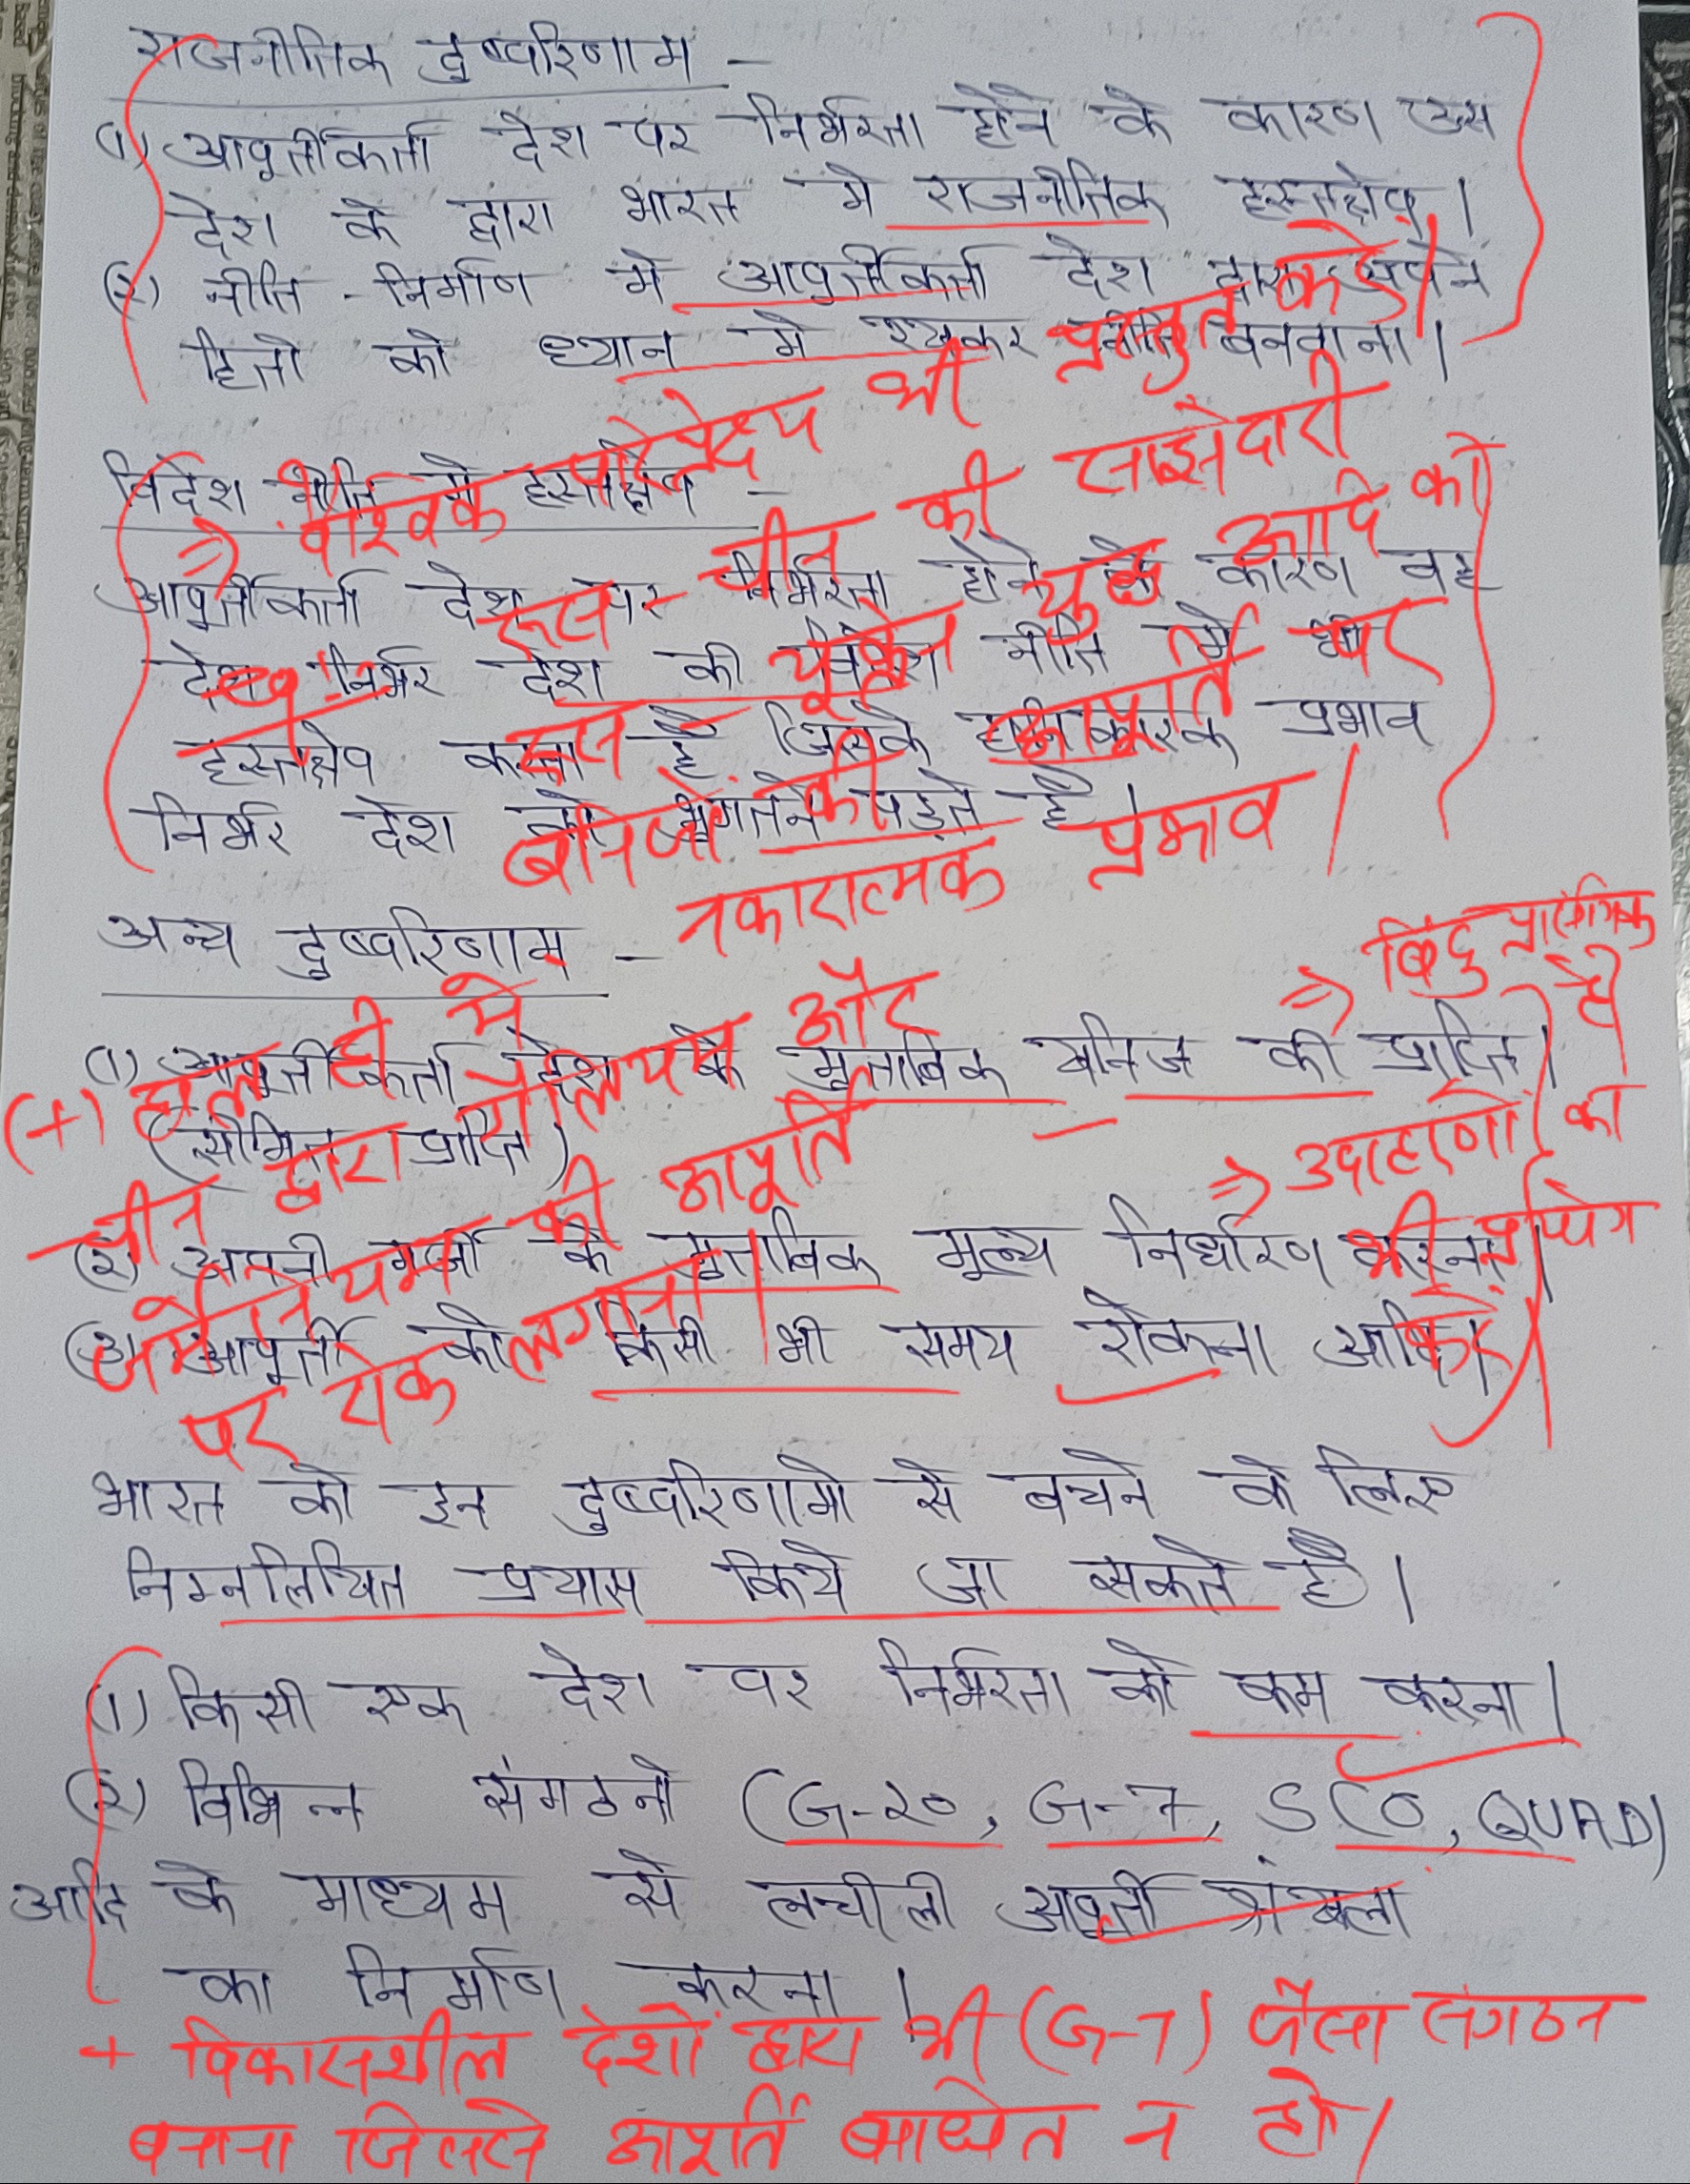 राजनीतिक दुष्परिणाम –
(1) आपूर्तीकर्ता देश पर निर्भरता होने के कारण उस
देश के द्वारा भारत मे राजनीतिक हस्तक्षेप।
(2) नीति-निर्माण मे आपूर्तीकर्ता देश द्वारा अपने
हितो को ध्यान मे रखकर नीति बनवाना।
⇒ वैश्विक परिप्रेक्ष्य भी प्रस्तुत करें।
विदेश नीति मे हस्तक्षेप –
आपूर्तीकर्ता देश पर निर्भरता होने के कारण वह
देश निर्भर देश की विदेश नीति मे भी
हस्तक्षेप करता है जिसके हानिकारक प्रभाव
निर्भर देश को भुगतने पड़ते है।
रूस चीन की साझेदारी
एवं रूस यूक्रेन युद्ध आदि को
खनिजों की आपूर्ति पर
नकारात्मक प्रभाव।
अन्य दुष्परिणाम –
⇒ बिंदु प्रासंगिक है।
(1) आपूर्तीकर्ता देश के मुताबिक खनिज की प्राप्ति।
(सीमित प्राप्ति)
(2) अपनी मर्जी के मुताबिक मूल्य निर्धारण करना।
(3) आपूर्ती को किसी भी समय रोकना आदि।
(+) हाल ही में
चीन द्वारा गैलियम और
जर्मेनियम की आपूर्ति
पर रोक लगाना।
⇒ उदाहरणों का
भी प्रयोग
करें।
भारत को इन दुष्परिणामो से बचने के लिए
निम्नलिखित प्रयास किये जा सकते है।
(1) किसी एक देश पर निर्भरता को कम करना।
(2) विभिन्न संगठनो (G-20, G-7, SCO, QUAD)
आदि के माध्यम से लचीली आपूर्ती श्रंखला
का निर्माण करना।
+ विकासशील देशों द्वारा भी (G-7) जैसा संगठन
बनाना जिससे आपूर्ति बाधित न हो।